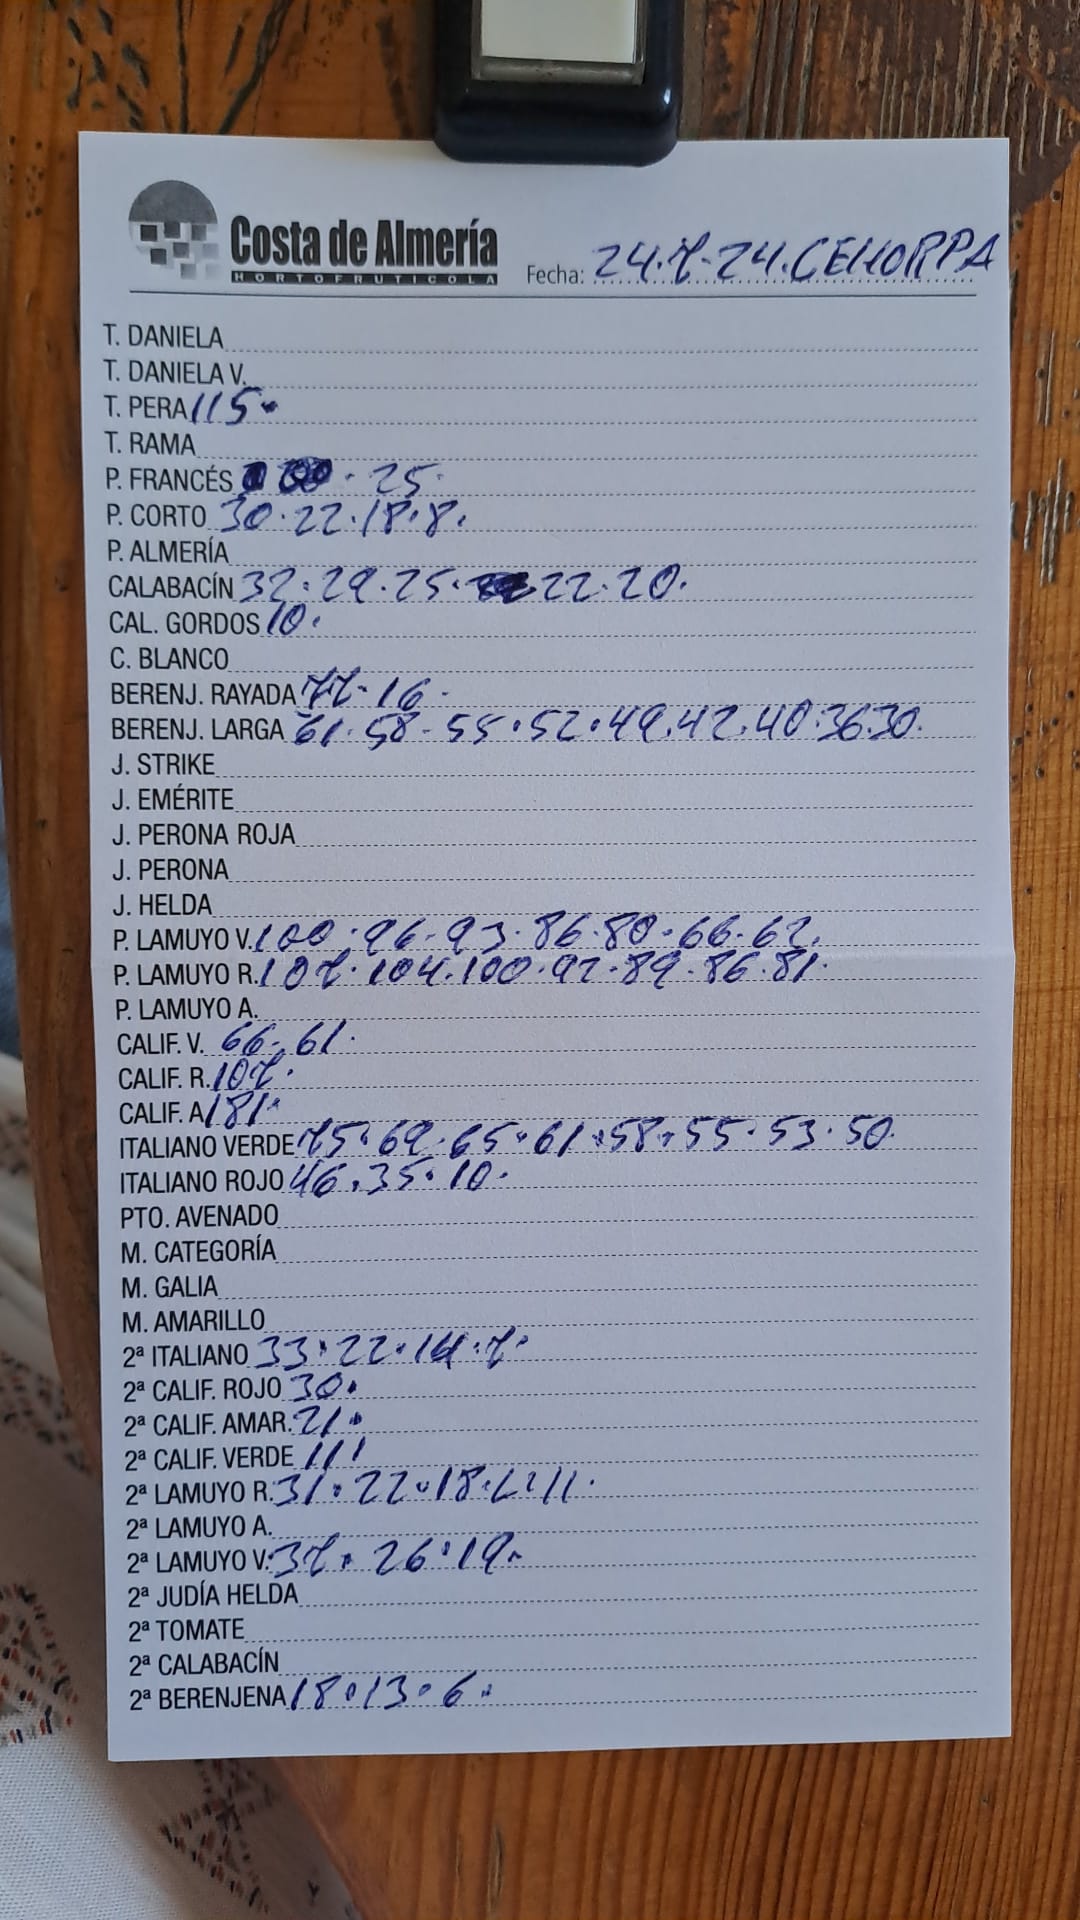 Costa de Almería
HORTOFRUTICOLA
Fecha: 24.7.24.CEHORPA
T. DANIELA
T. DANIELA V.
T. PERA 115.
T. RAMA
P. FRANCÉS . 25.
P. CORTO 30.22.18.8.
P. ALMERÍA
CALABACÍN 32.29.25. 22.20.
CAL. GORDOS 10.
C. BLANCO
BERENJ. RAYADA 77.16.
BERENJ. LARGA 61.58.55.52.49.42.40.36.30.
J. STRIKE
J. EMÉRITE
J. PERONA ROJA
J. PERONA
J. HELDA
P. LAMUYO V. 100.96.93.86.80.66.62.
P. LAMUYO R. 107.104.100.92.89.86.81.
P. LAMUYO A.
CALIF. V. 66.61.
CALIF. R. 107.
CALIF. A 181.
ITALIANO VERDE 75.69.65.61.58.55.53.50.
ITALIANO ROJO 46.35.10.
PTO. AVENADO
M. CATEGORÍA
M. GALIA
M. AMARILLO
2ª ITALIANO 33.22.14.7.
2ª CALIF. ROJO 30.
2ª CALIF. AMAR. 21.
2ª CALIF. VERDE
2ª LAMUYO R. 31.22.18. 11.
2ª LAMUYO A.
2ª LAMUYO V. 37.26.19.
2ª JUDÍA HELDA
2ª TOMATE
2ª CALABACÍN
2ª BERENJENA 18.13.6.